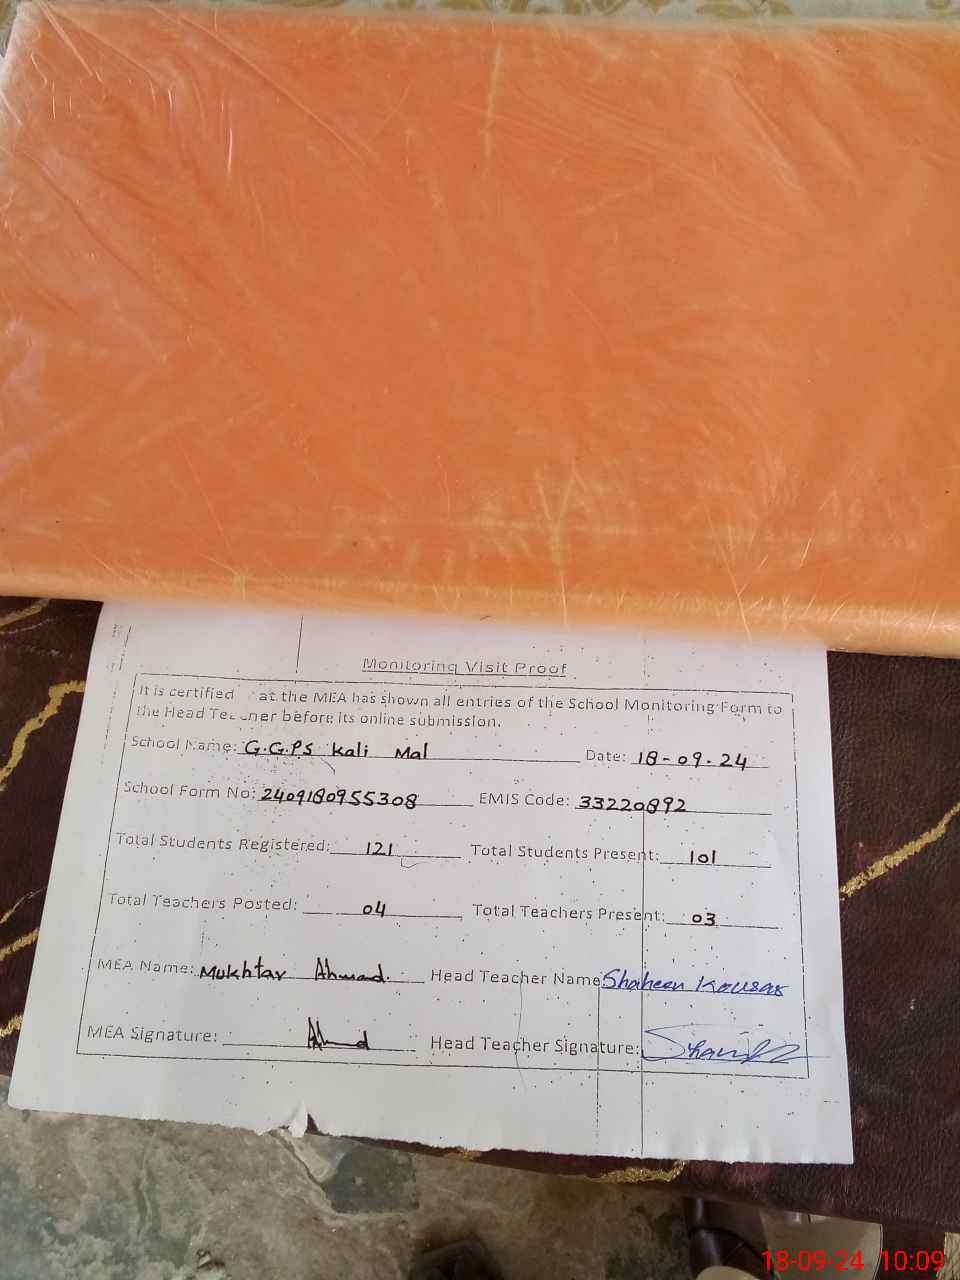 Monitoring Visit Proof
It is certified at the MEA has shown all entries of the School Monitoring Form to
the Head Teacher before its online submission.
School Name: G.G.P.S Kali Mal Date: 18-09-24
School Form No: 2409180955308 EMIS Code: 33220892
Total Students Registered: 121 Total Students Present: 101
Total Teachers Posted: 04 Total Teachers Present: 03
MEA Name: Mukhtar Ahmad Head Teacher Name Shaheen Kousar
MEA Signature: Head Teacher Signature:
18-09-24 10:09